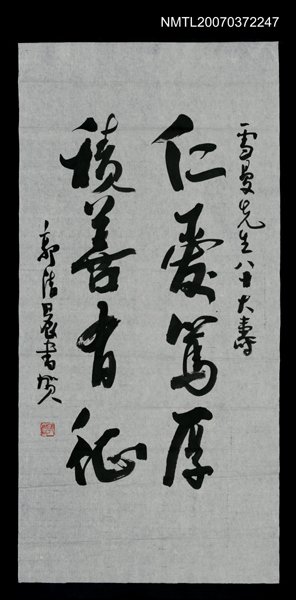 NMTL20070372247
雪曼先生八十大壽
仁愛篤厚
積善有征
郭清晨書賀